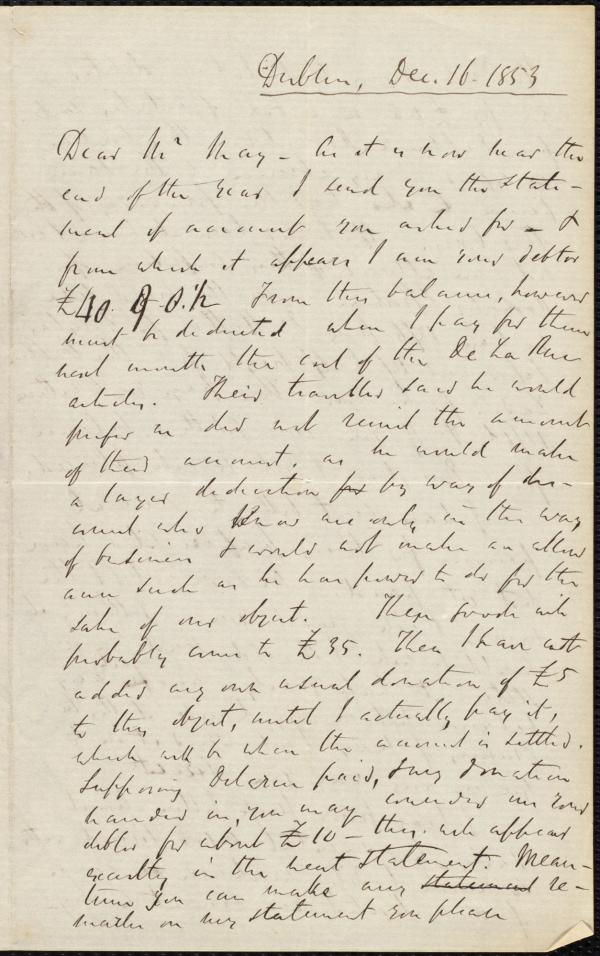 Dublin, Dec. 16. 1853
Dear Mr May - As it is now near the
end of the year I send you the state-
ment of account you asked for - &
from which it appears I am your debtor
£40. 9- 0.½ From this balance, however
must be deducted when I pay for them
next month the cost of the De La Rue
articles. Their traveller said he would
prefer we did not remit the amount
of their account, as he would make
a larger deduction for by way of dis-
count who know me only in the way
of business & would not make an allow
ance such as he has power to do for the
sake of our object. These goods will
probably come to £35. Then I have not
added my own usual donation of £5
to this object, until I actually pay it,
which will be when the account is settled.
Supposing Delarue paid, & my donation
handed in, you may consider me your
debtor for about £10 - this will appear
exactly in the next statement. Mean-
time you can make any statement re-
marks on my statement you please